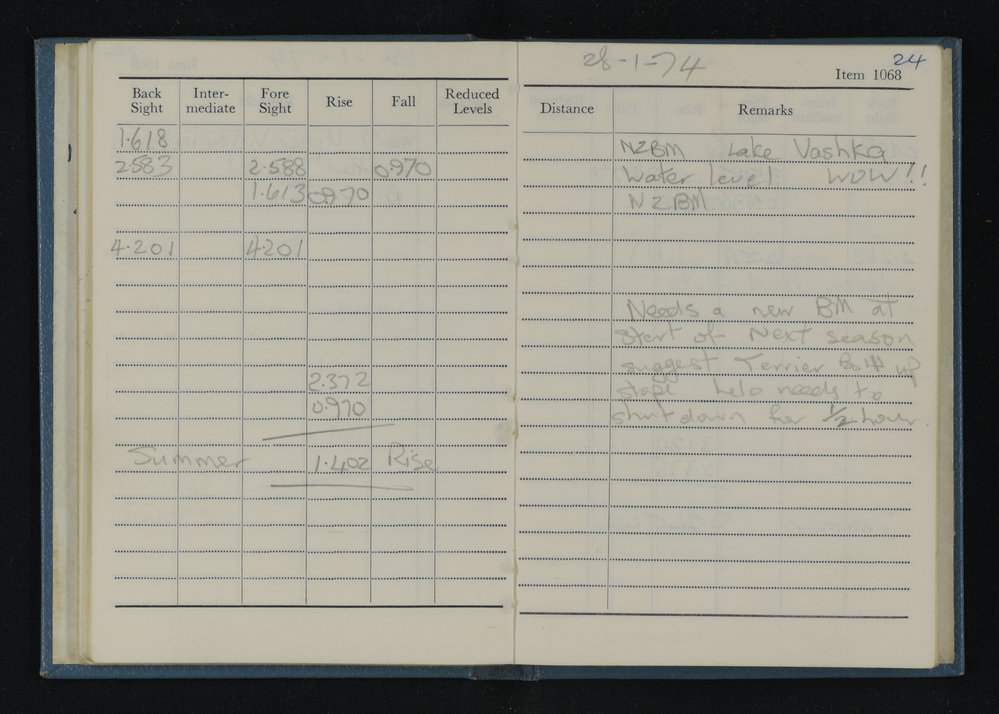 28-1-74
24
Item 1068
Back Sight Inter-mediate Fore Sight Rise Fall Reduced Levels Distance Remarks
1.618 NZBM Lake Vashka
2.583 2.588 0.970 Water level WOW!!
1.613 0.970 NZBM
4.201 4.201
Needs a new BM at
start of Next season
suggest Terrier Bolt up
2.372 slope helo needs to
0.970 shut down for 1/2 hour.
Summer 1.402 Rise